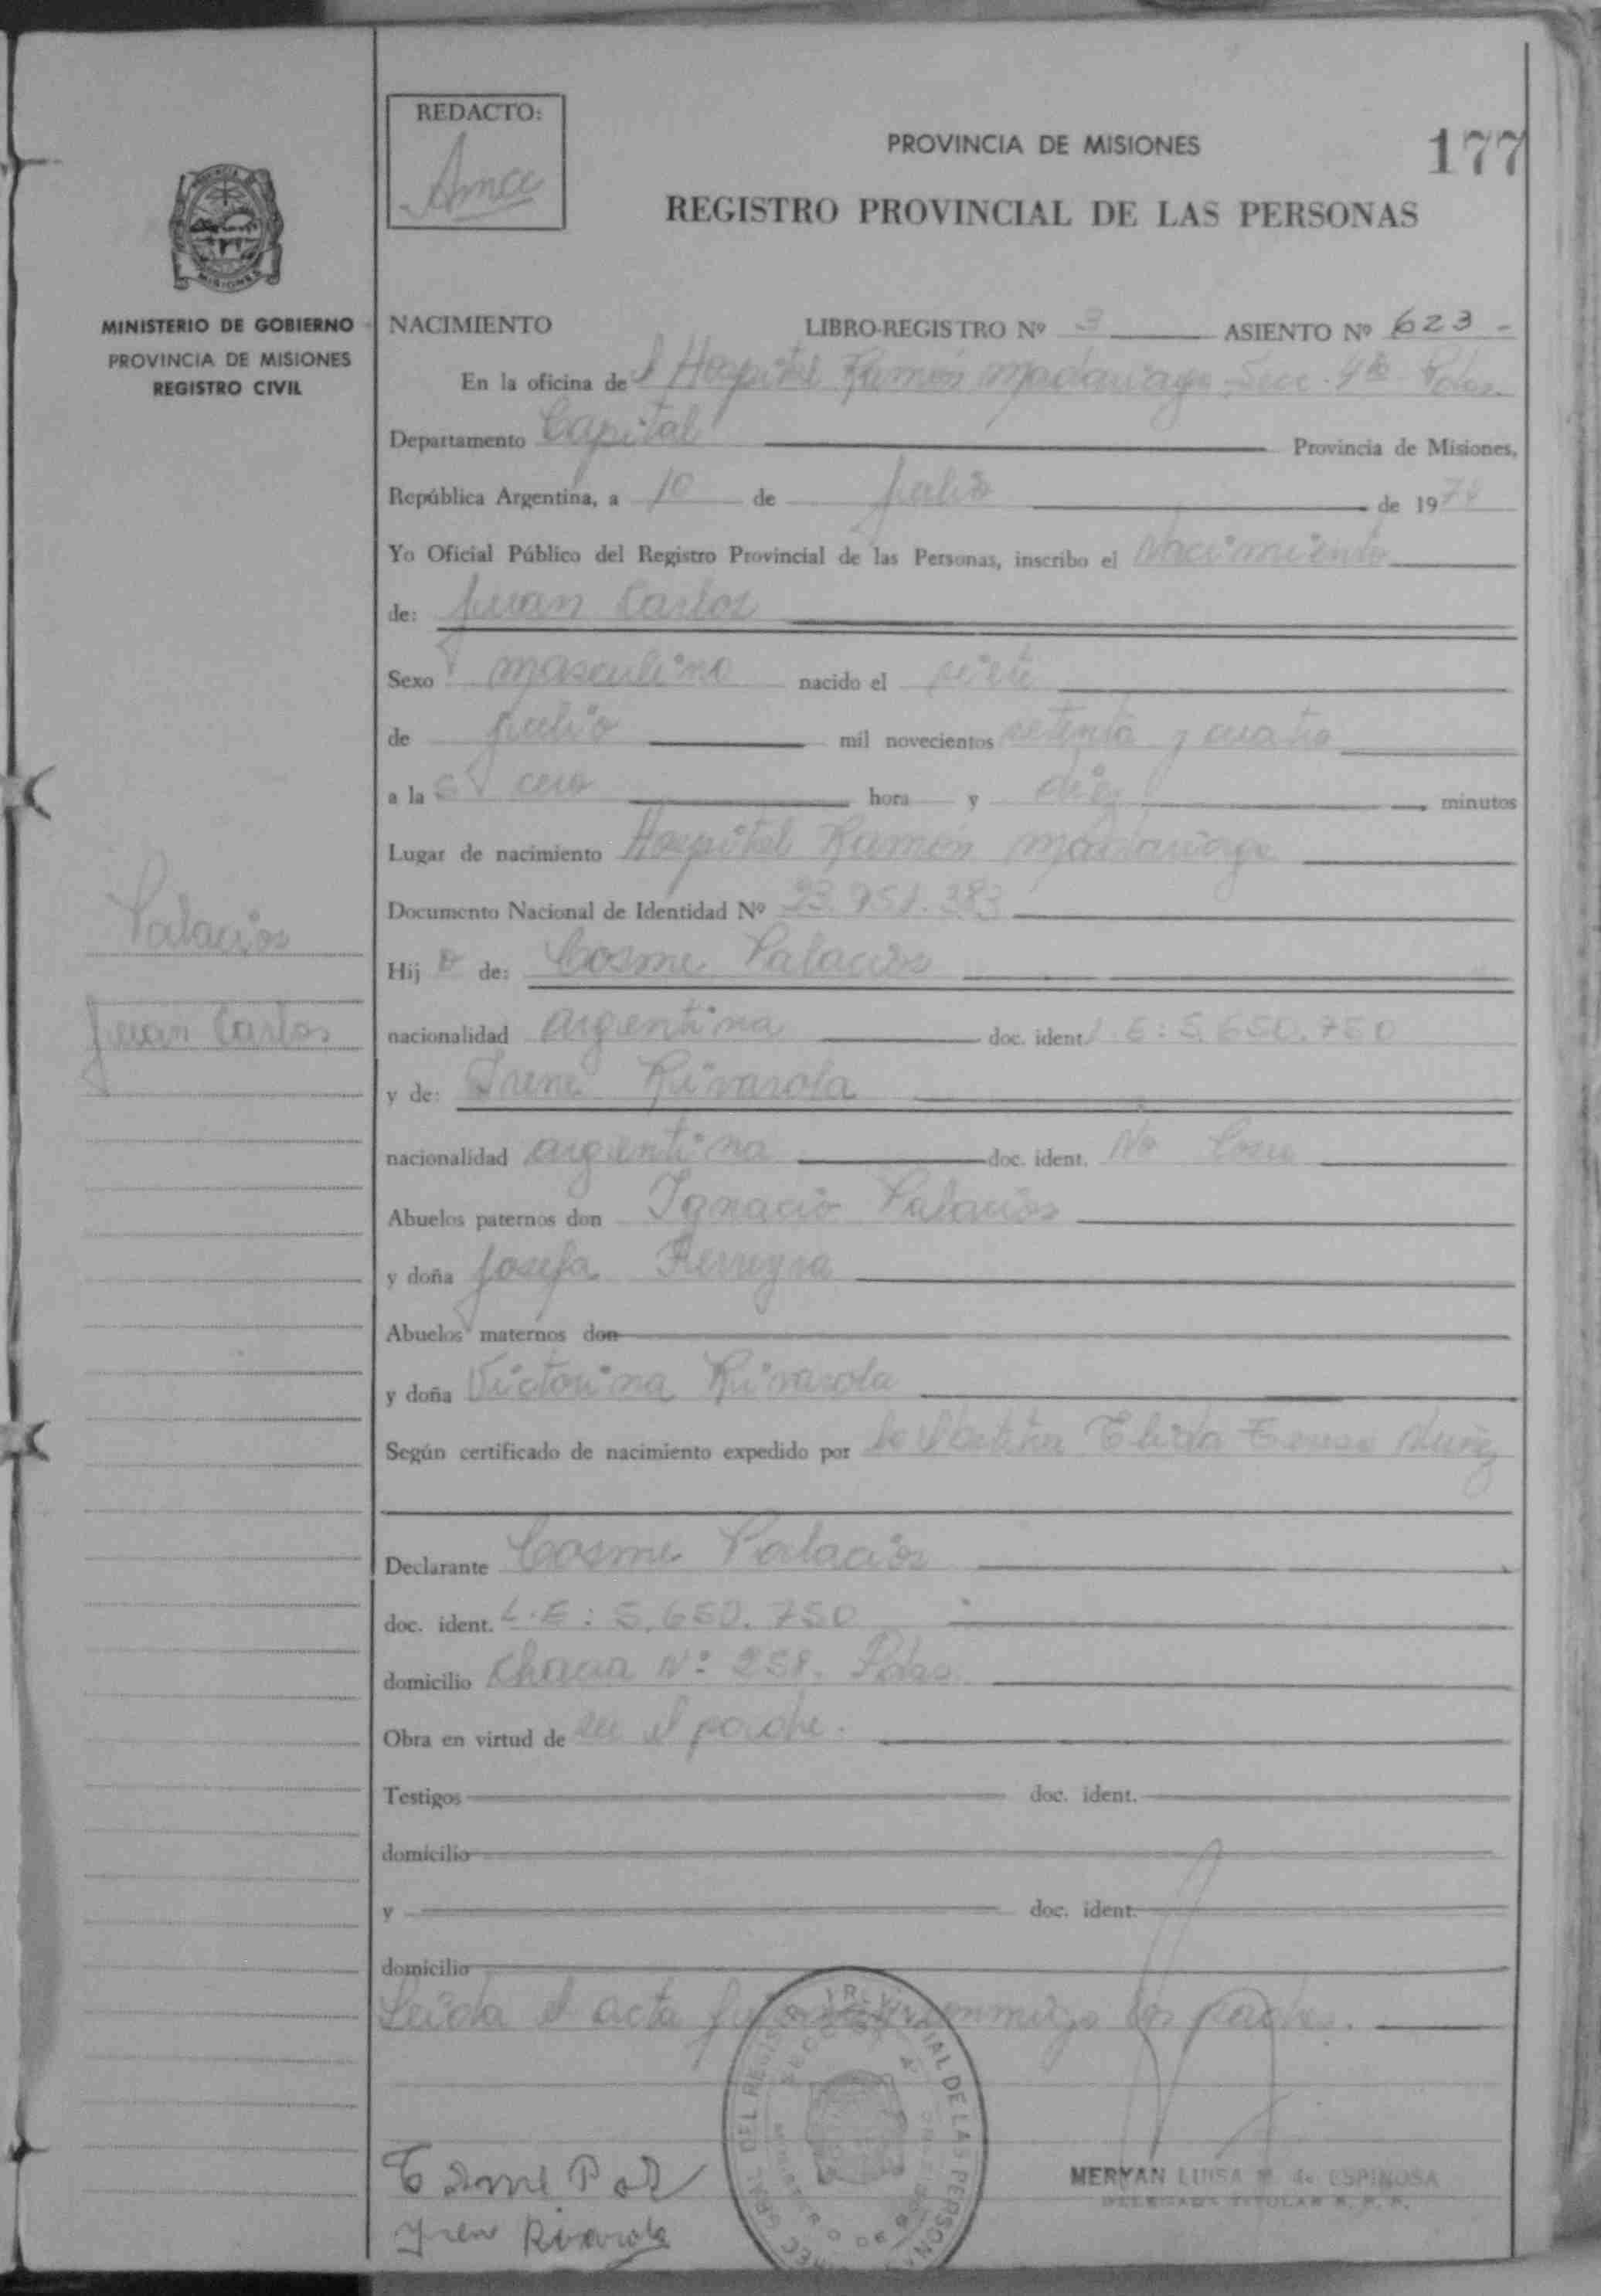 REDACTO:
PROVINCIA DE MISIONES
177
REGISTRO PROVINCIAL DE LAS PERSONAS
MINISTERIO DE GOBIERNO
PROVINCIA DE MISIONES
REGISTRO CIVIL
NACIMIENTO LIBRO-REGISTRO Nº 3 ASIENTO Nº 623 -
En la oficina del Hospital Ramón Madariaga Secc. 4ta Pdas.
Departamento Capital Provincia de Misiones,
República Argentina, a 10 de julio de 1974
Yo Oficial Público del Registro Provincial de las Personas, inscribo el Nacimiento
de: Juan Carlos
Sexo masculino nacido el siete
de julio mil novecientos setenta y cuatro
a las cero hora y diez minutos
Lugar de nacimiento Hospital Ramón Madariaga
Documento Nacional de Identidad Nº 23.951.383
Palacios
Juan Carlos
Hijo de: Cosme Palacios
nacionalidad argentina doc. ident. L.E: 5.650.750
y de: Irene Rivarola
nacionalidad argentina doc. ident. No
Abuelos paternos don Ignacio Palacios
y doña Josefa Ferreyra
Abuelos maternos don
y doña Victorina Rivarola
Según certificado de nacimiento expedido por la Elida
Declarante Cosme Palacios
doc. ident. L.E: 5.650.750
domicilio Chacra Nº 258. Pdas
Obra en virtud de ser el padre.
Testigos doc. ident.
domicilio
y doc. ident.
domicilio
Leída el acta conmigo los padres.
MERYAN LUISA de ESPINOSA
DELEGADA TITULAR R. P. P.
Yren Rivarola